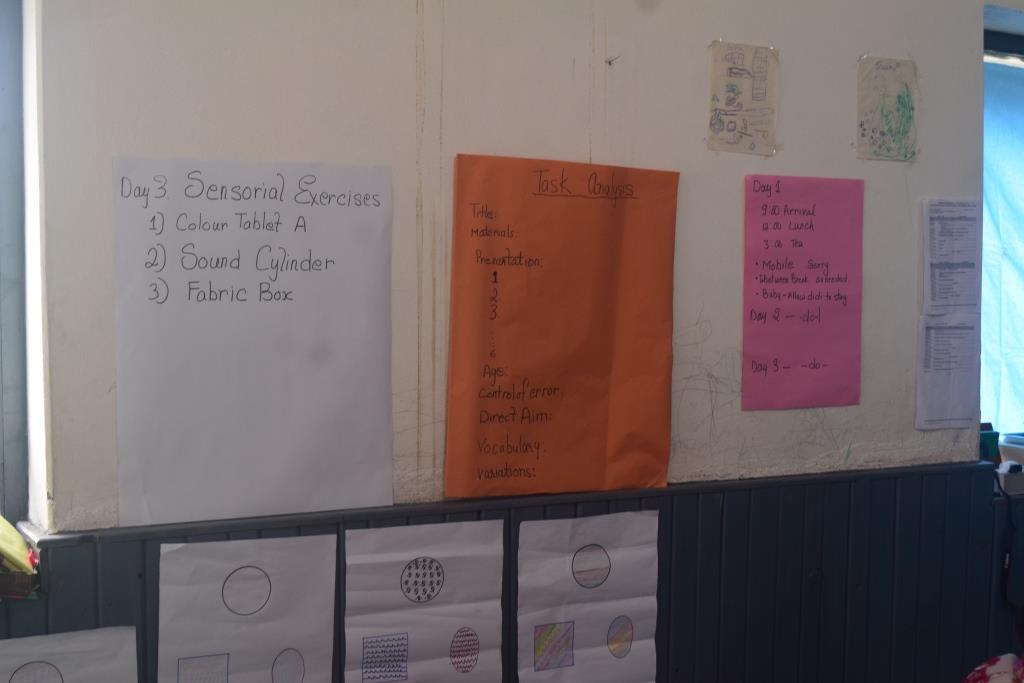 Day 3. Sensorial Exercises
1) Colour Tablet A
2) Sound Cylinder
3) Fabric Box
Task Analysis
Title:
Materials:
Presentation:
1
2.
3.
Age:
Control of error:
Direct Aim:
Vocabulary:
Variations:
Day 1
9:00 Arrival
12:00 Lunch
3:00 Tea
• Mobile Sorry
break as needed
• Baby - Allow didi to stay
Day 2 - -do-
Day 3 - -do-